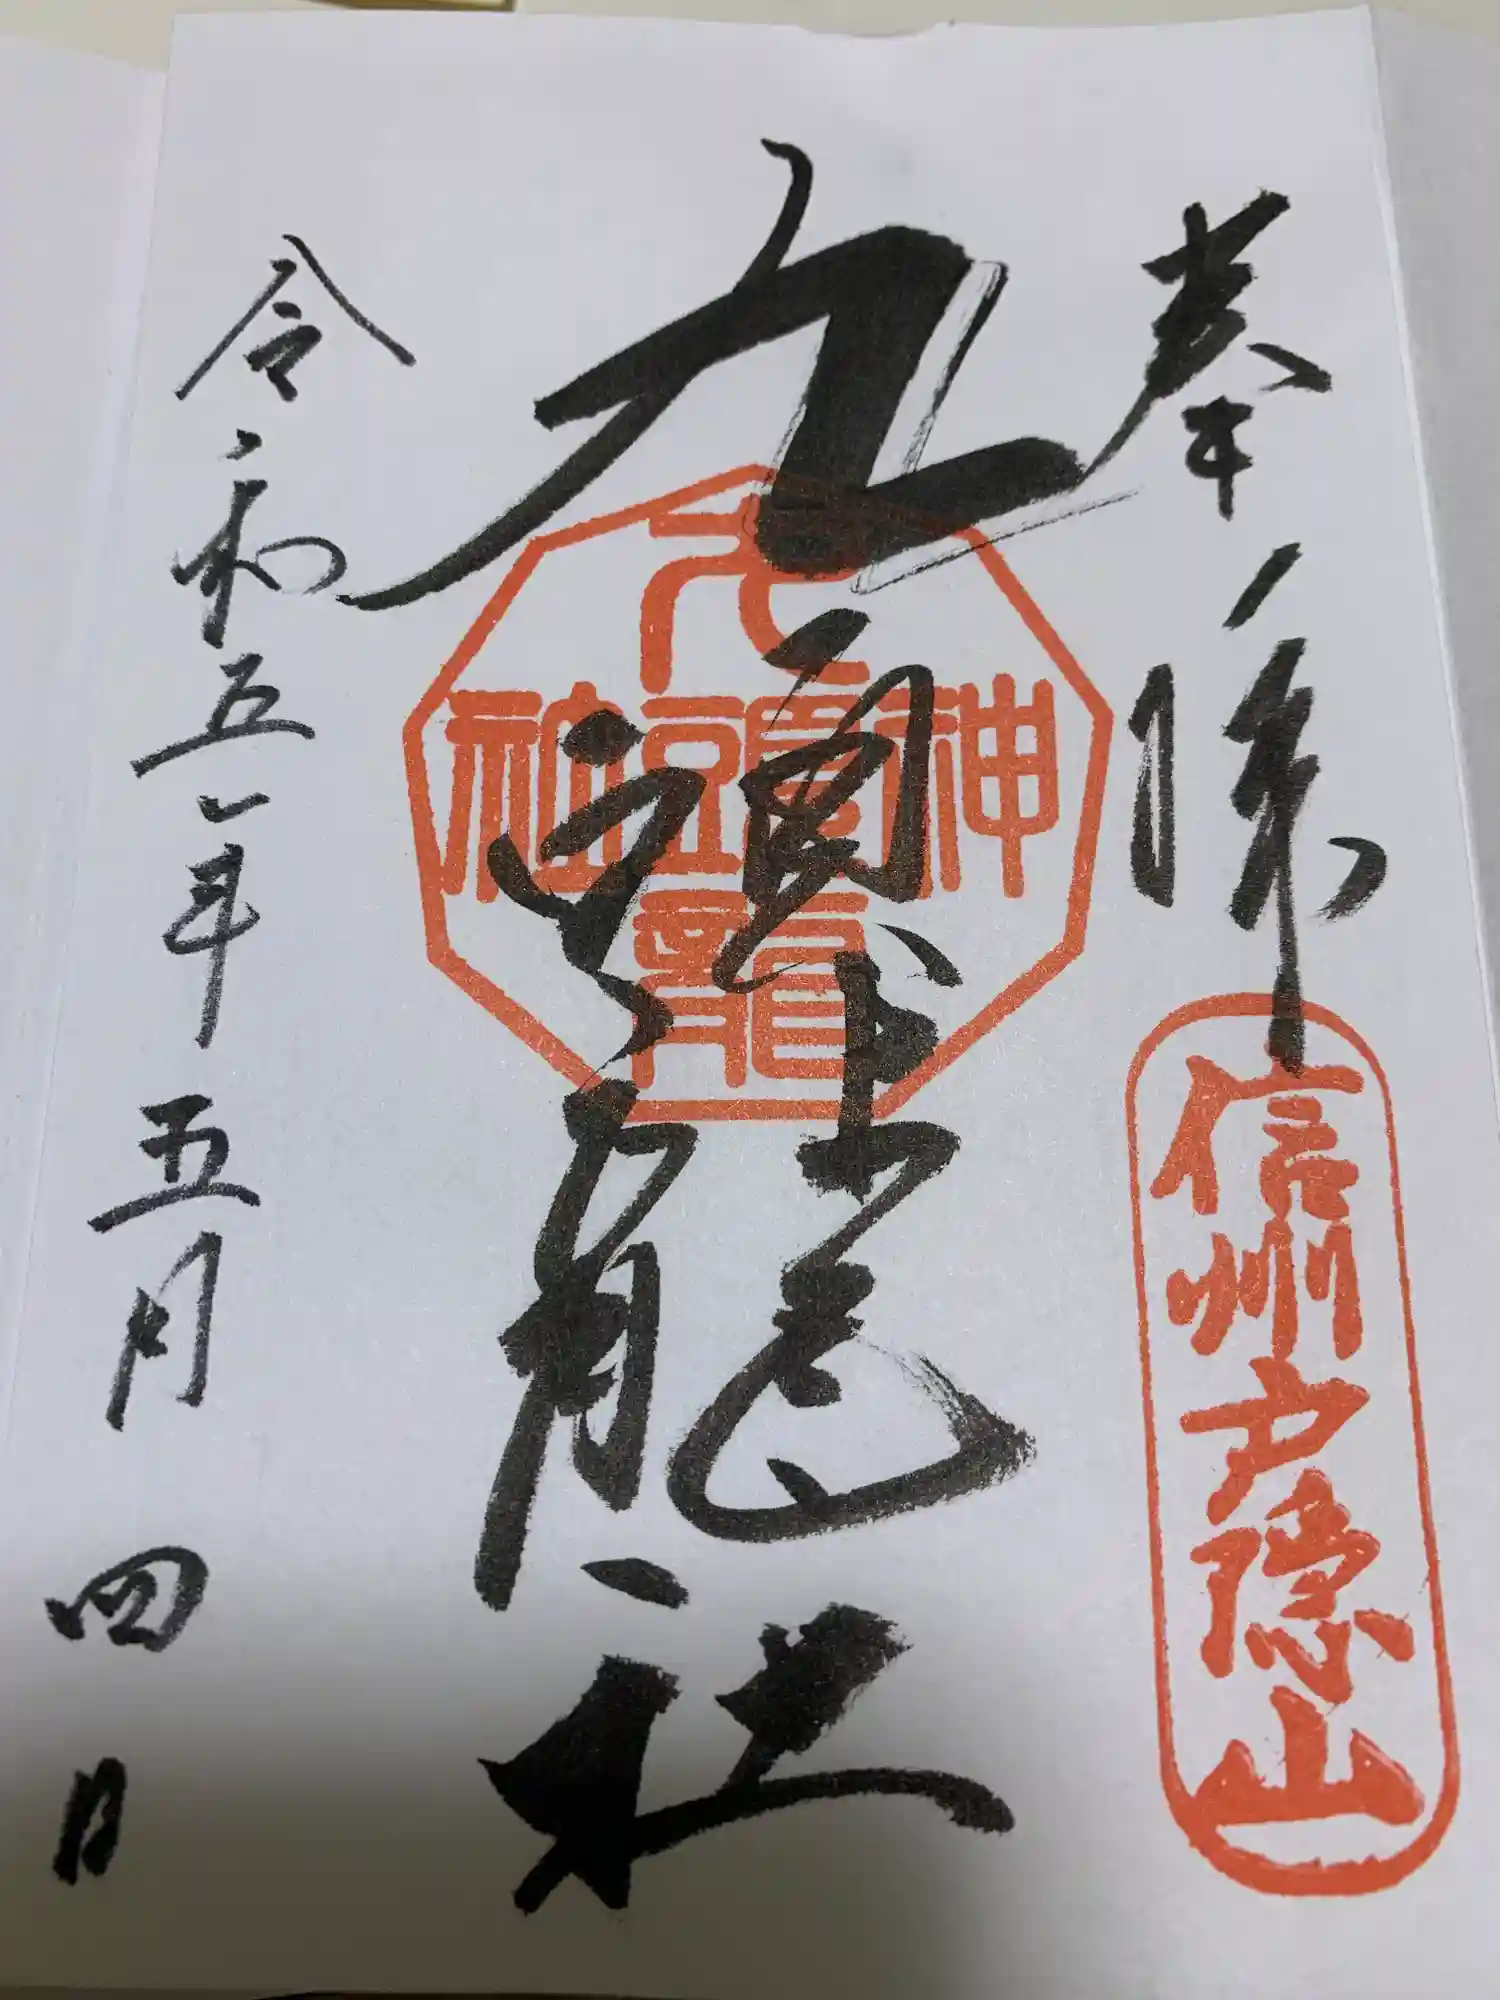 奉拝
信州戸隠山
九頭龍社
神
九頭龍
社
令和五年五月四日